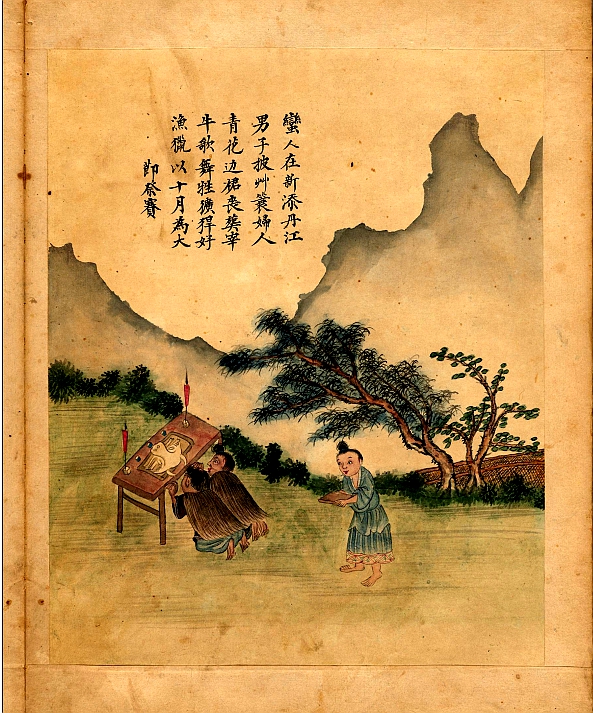 蠻人在新添丹江
男子披艸蓑婦人
青花边裙喪葬宰
牛歌舞性獷悍好
漁獵以十月為大
即祭賽